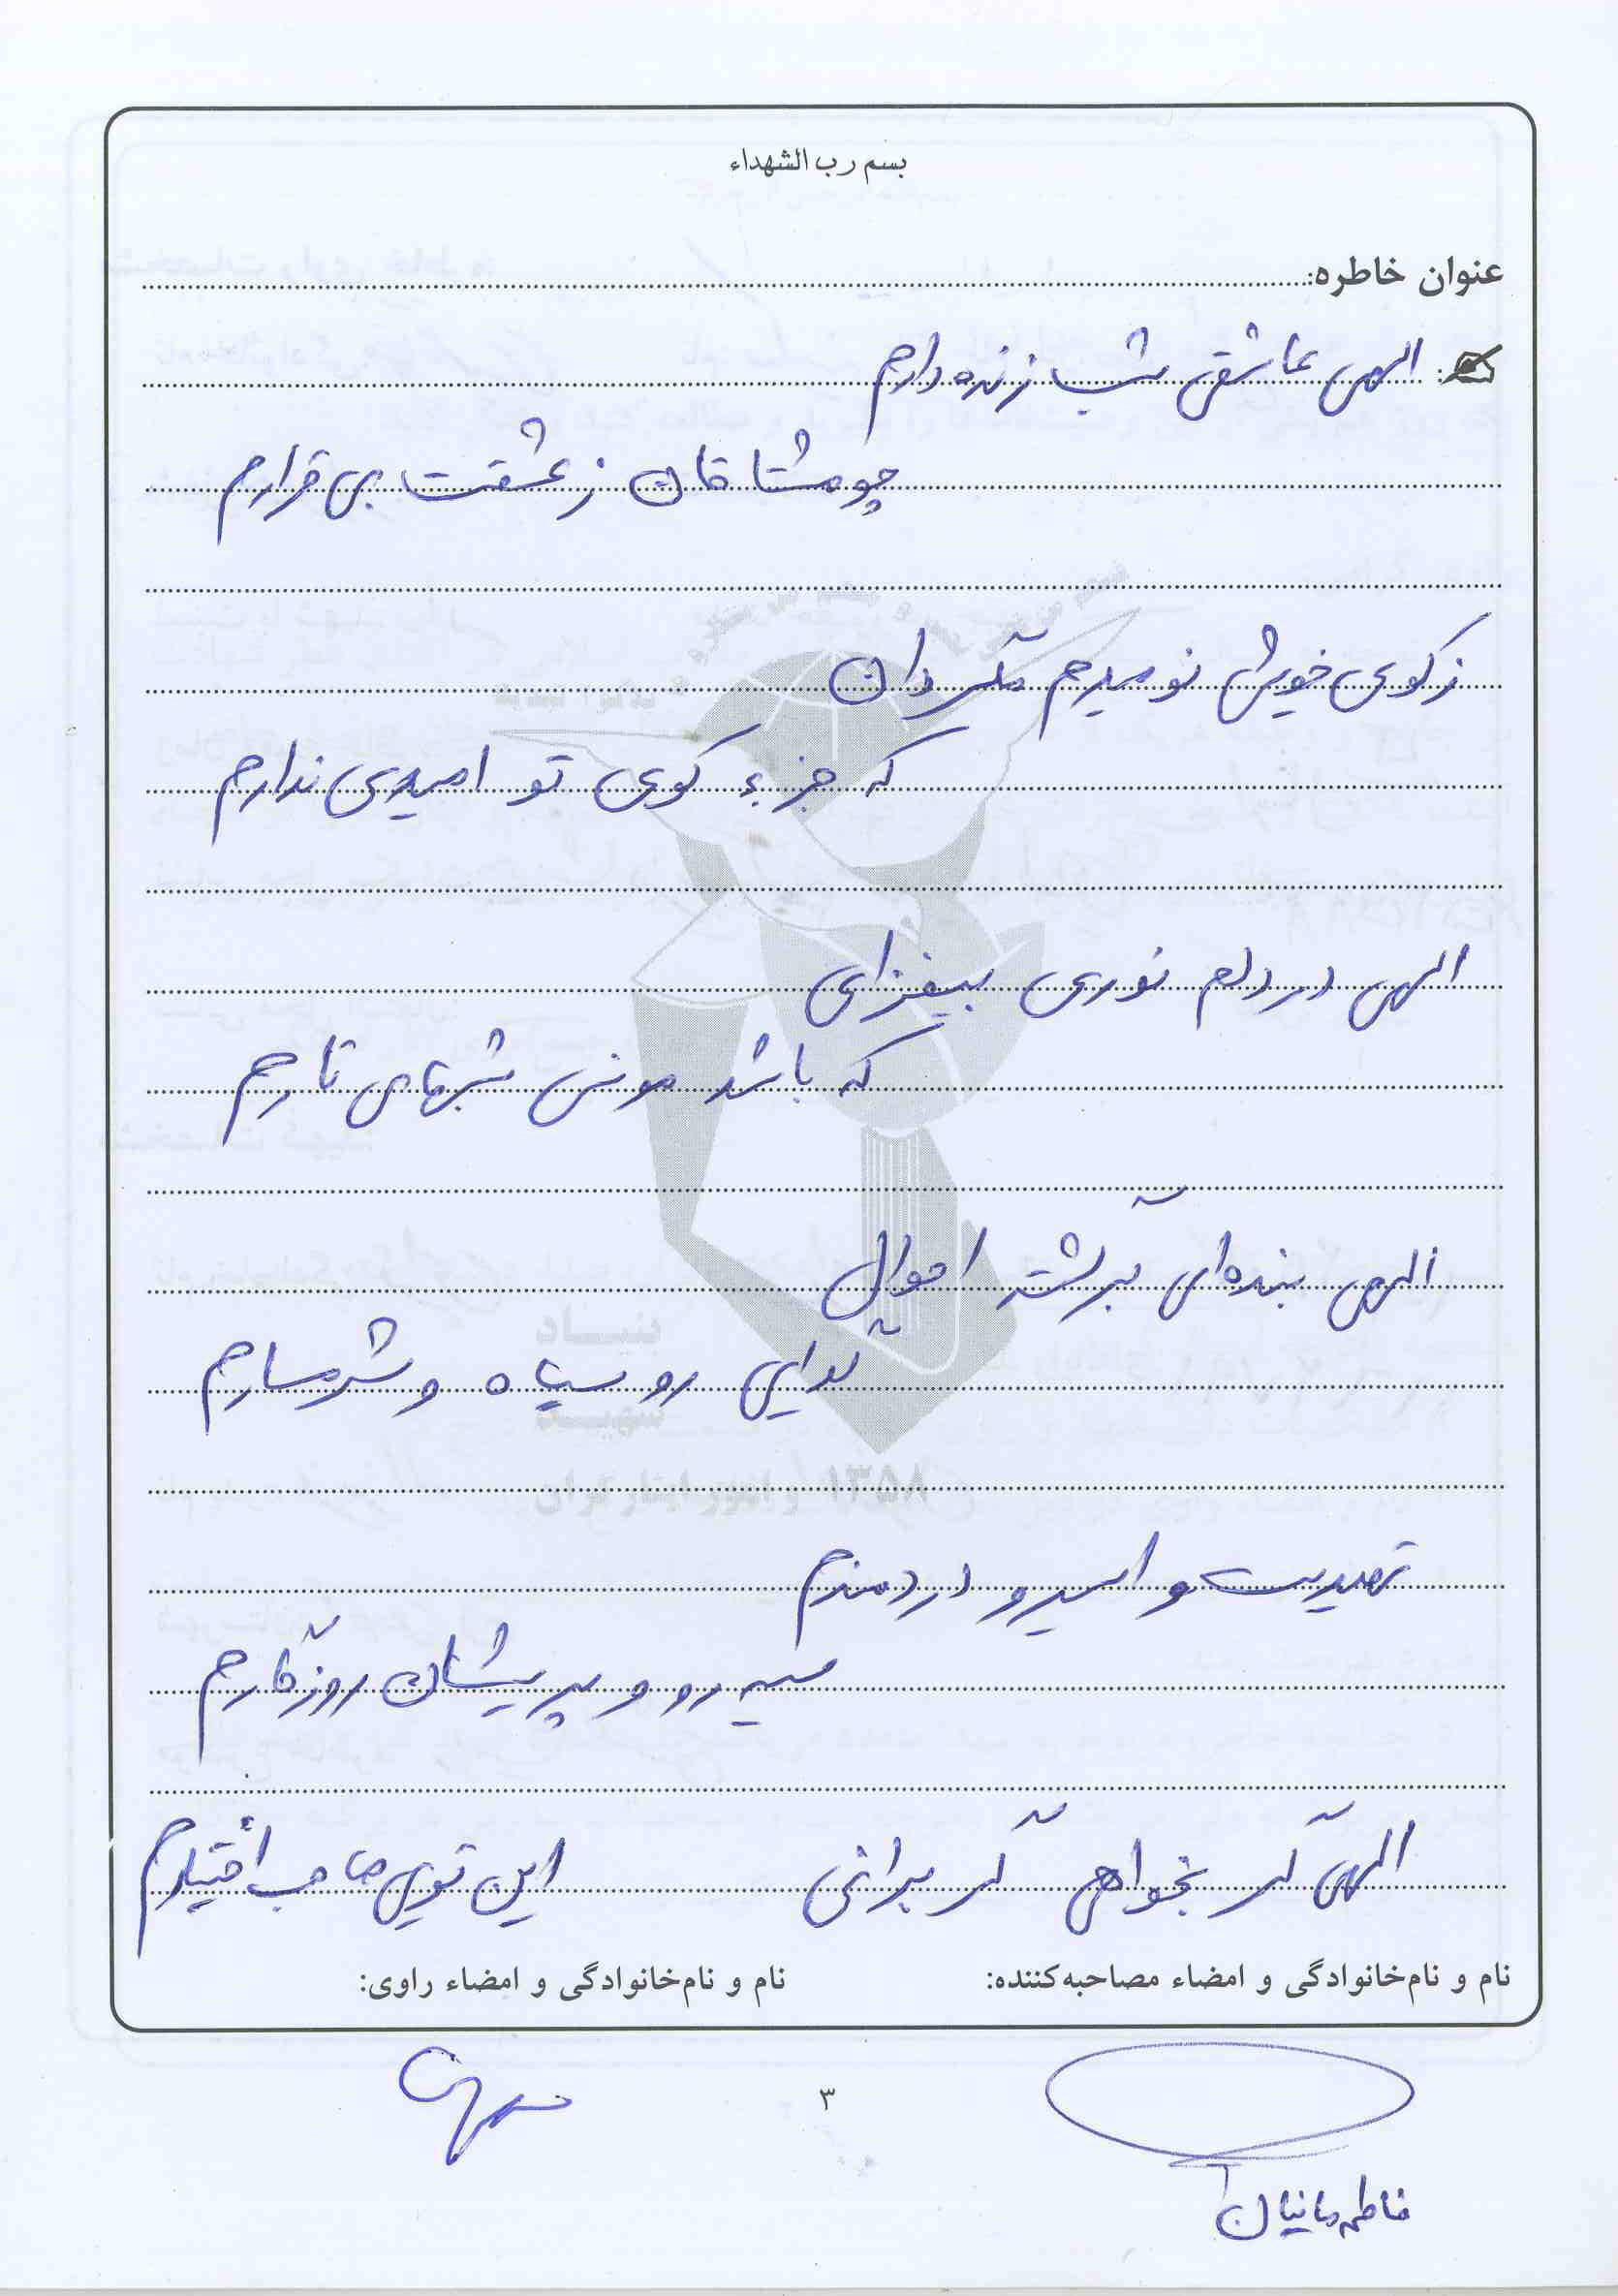 بسم رب الشهداء
عنوان خاطره:
الهی عاشقی شب زنده دارم
چو مشتاقان ز عشقت بی قرارم
ز کوی خویش نومیدم مگردان
که جزء کوی تو امیدی ندارم
الهی در دلم نوری بیفزای
که باشد مونس شبهای تارم
الهی بنده‌ای برگشته احوال
گدایی رو سیاه و شرمسارم
تهیدست و اسیر و دردمندم
سیه رو و پریشان روزگارم
الهی گر بخواهی گر برانی این تویی صاحب اختیارم
نام و نام‌خانوادگی و امضاء مصاحبه‌کننده: نام و نام‌خانوادگی و امضاء راوی:
۳
فاطمه
بنیاد
شهید
و امور ایثارگران
۱۳۵۸